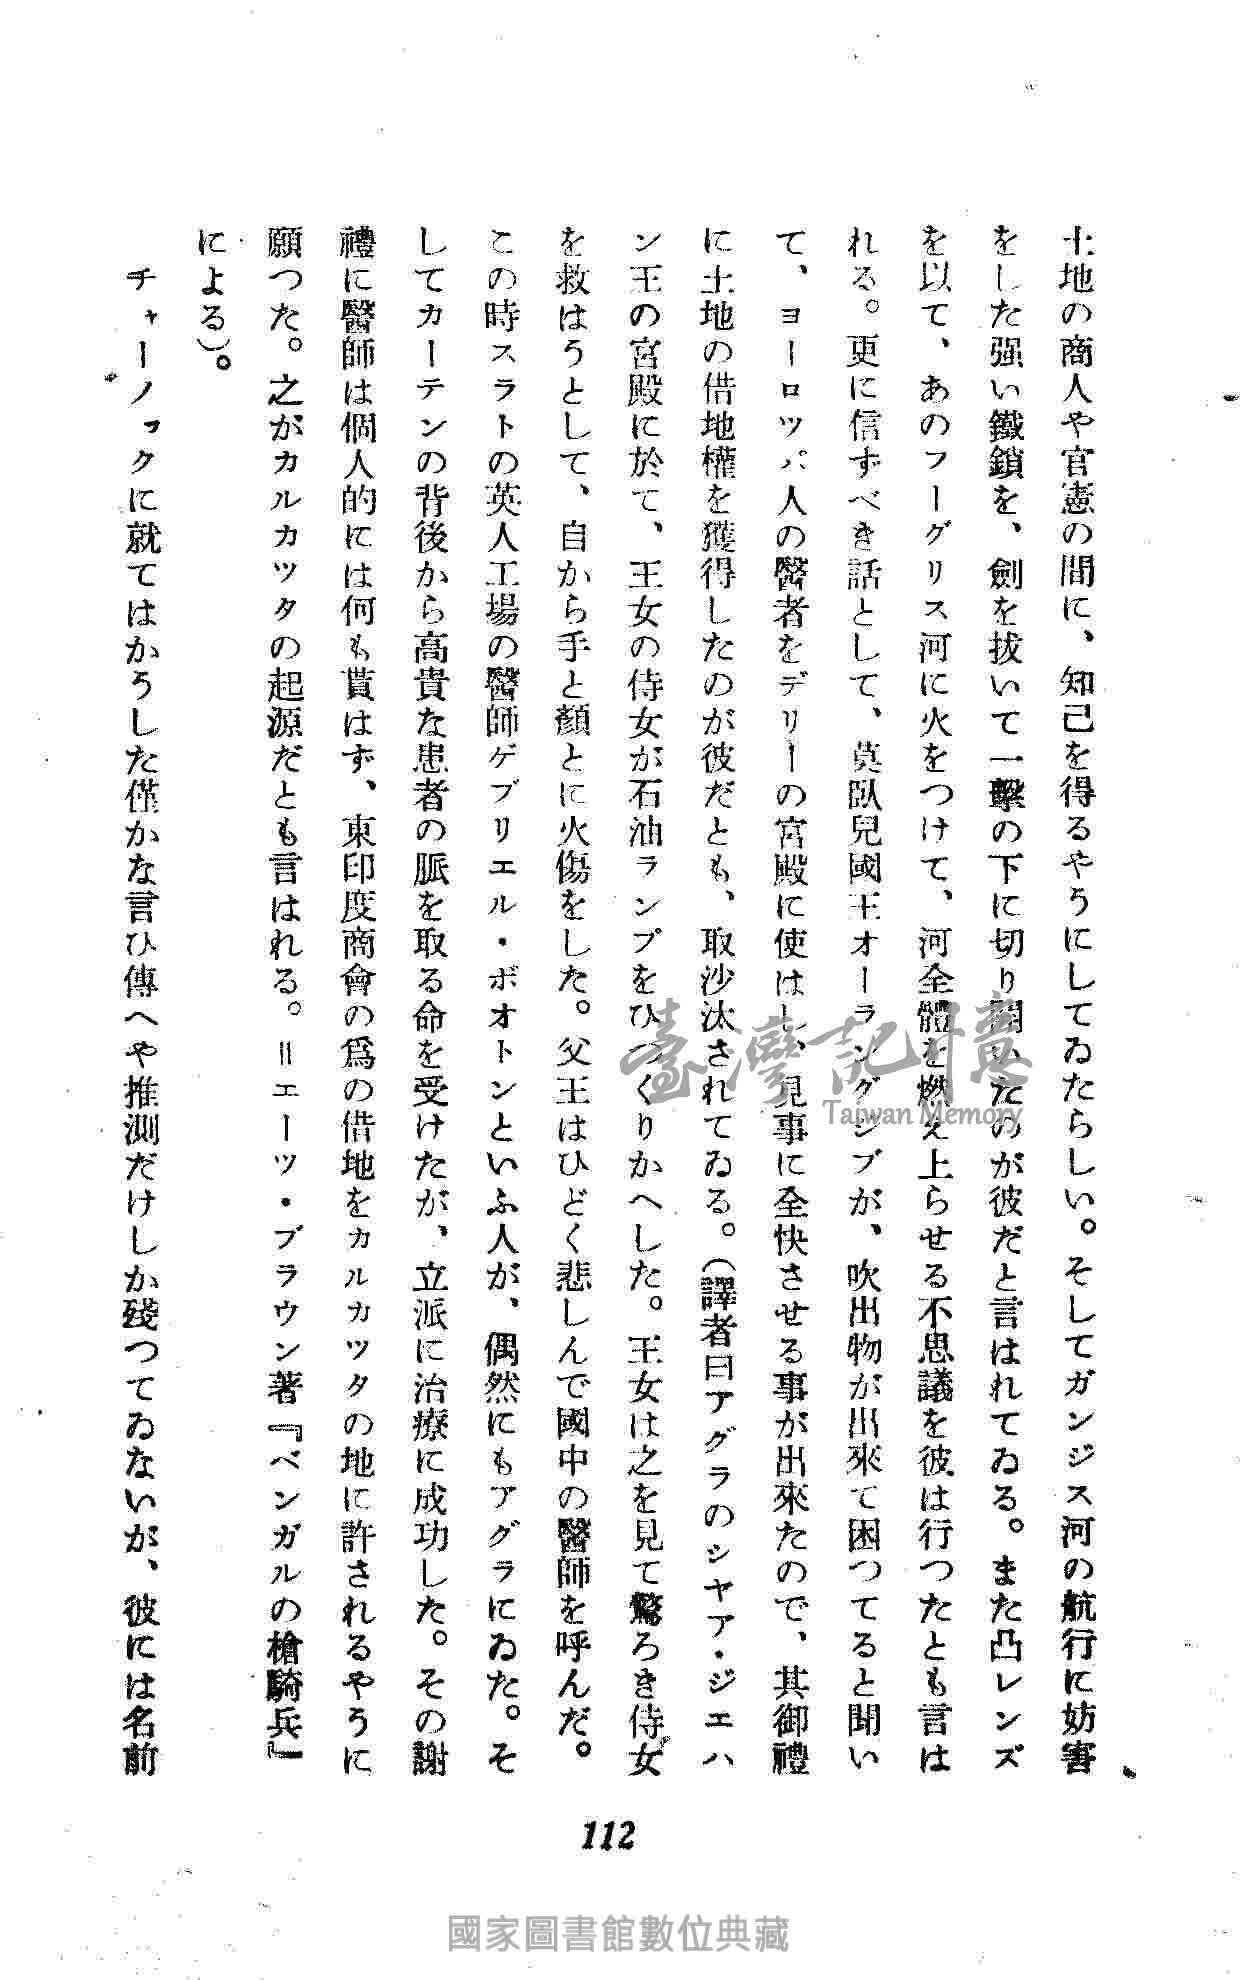 土地の商人や官憲の間に、知己を得るやうにしてゐたらしい。そしてガンジス河の航行に妨害
をした强い鐵鎖を、劍を拔いて一擊の下に切り開いたのが彼だと言はれてゐる。また凸レンズ
を以て、あのフーグリス河に火をつけて、河全體を燃え上らせる不思議を彼は行つたとも言は
れる。更に信ずべき話として、莫臥兒國王オーラングジブが、吹出物が出來て困つてると聞い
て、ヨーロツパ人の醫者をデリーの宮殿に使はし、見事に全快させる事が出來たので、其御禮
に土地の借地權を獲得したのが彼だとも、取沙汰されてゐる。（譯者曰アグラのシヤア・ジエハ
ン王の宮殿に於て、王女の侍女が石油ランプをひつくりかへした。王女は之を見て驚ろき侍女
を救はうとして、自から手と顏とに火傷をした。父王はひどく悲しんで國中の醫師を呼んだ。
この時スラトの英人工場の醫師ゲブリエル・ボオトンといふ人が、偶然にもアグラにゐた。そ
してカーテンの背後から高貴な患者の脈を取る命を受けたが、立派に治療に成功した。その謝
禮に醫師は個人的には何も貰はず、東印度商會の爲の借地をカルカツタの地に許されるやうに
願つた。之がカルカツタの起源だとも言はれる。＝エーツ・ブラウン著『ベンガルの槍騎兵』
による）。
チャーノックに就てはかうした僅かな言ひ傳へや推測だけしか殘つてゐないが、彼には名前
112
臺灣記憶
Taiwan Memory
國家圖書館數位典藏